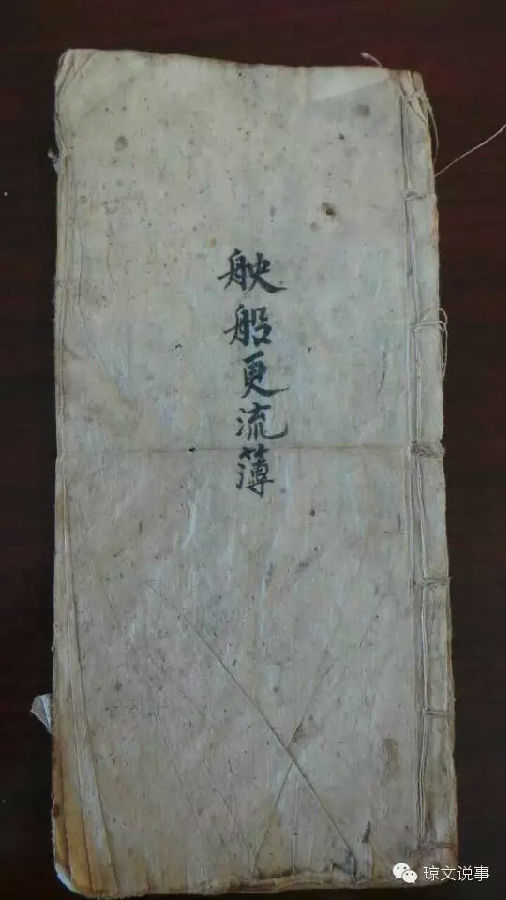 舦船更流簿
琼文说事